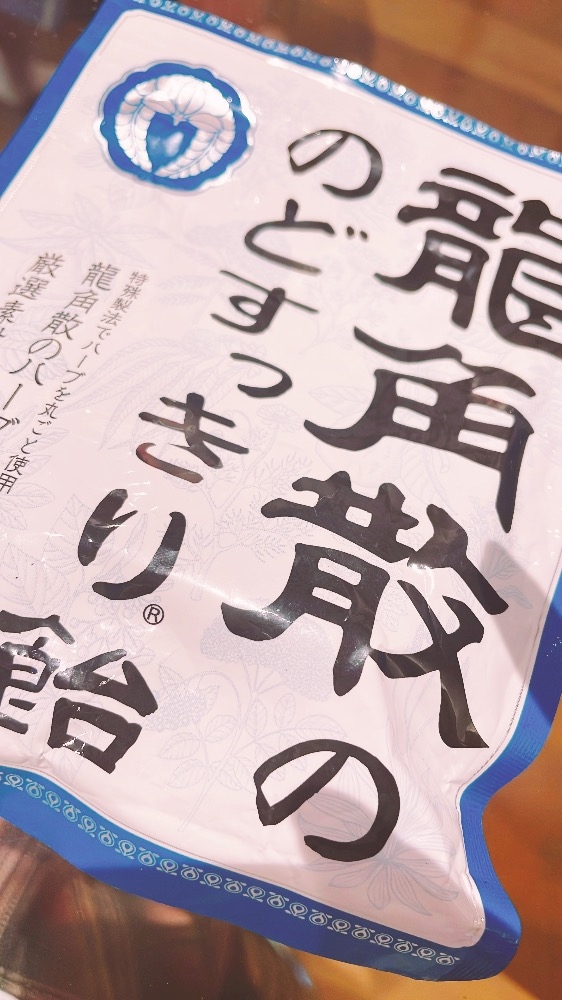 龍角散の
のどすっきり®
飴
特殊製法でハーブを丸ごと使用
龍角散のハーブ
厳選素材